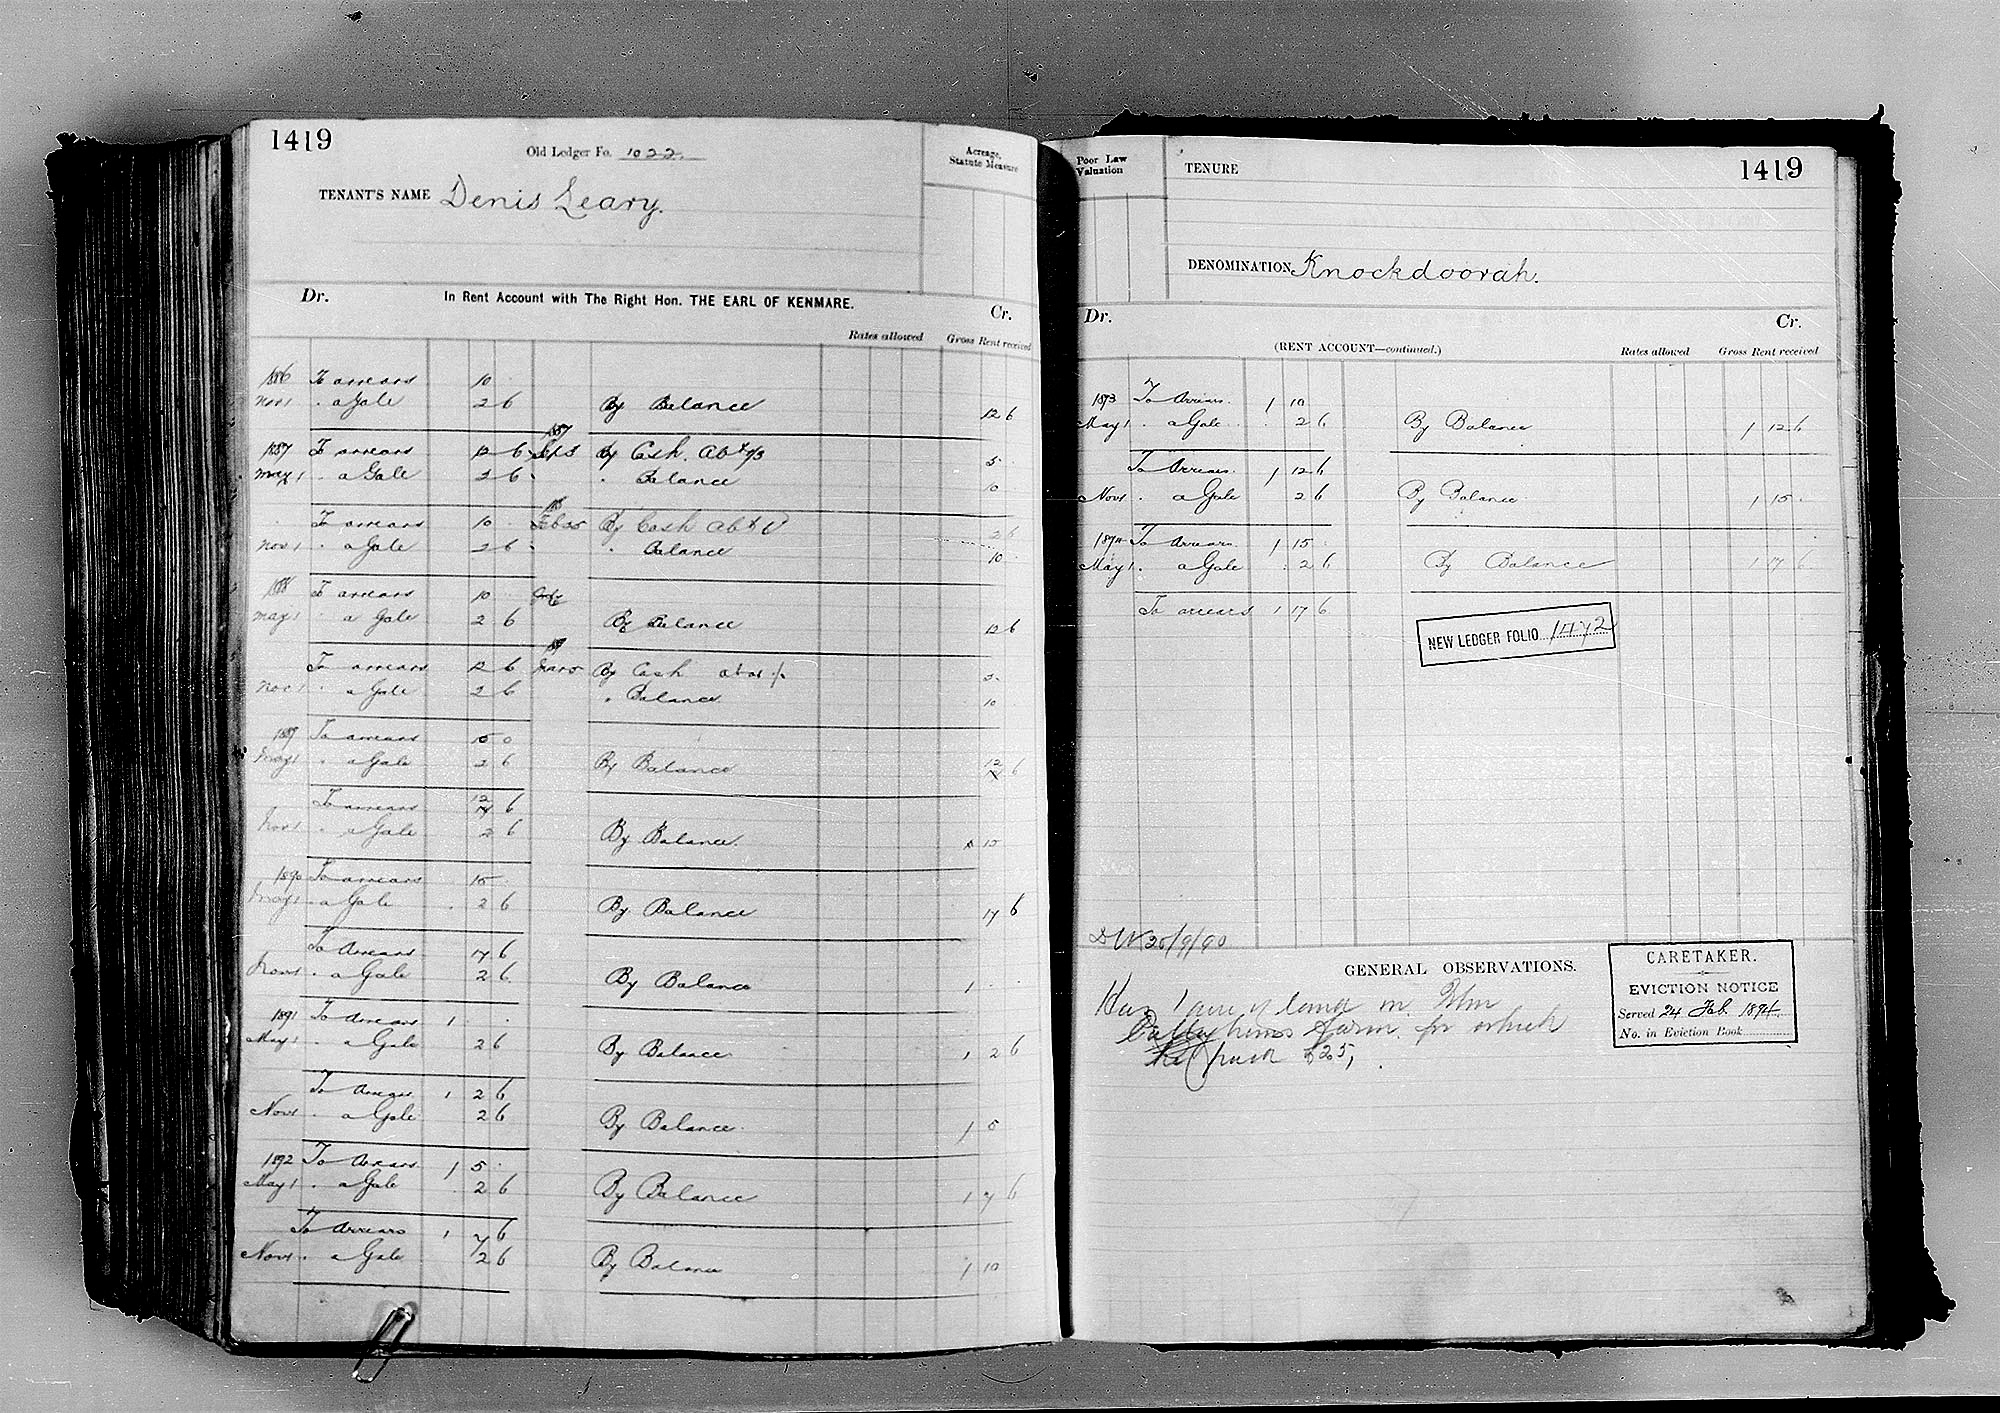 1419
Old Ledger Fo. 1022.
Acreage, Statute Measure
TENANT'S NAME Denis Leary.
Dr. In Rent Account with The Right Hon. THE EARL OF KENMARE. Cr.
Rates allowed Gross Rent received
1886 To arrears 10
Nov 1 . a Gale 2 6 By Balance 12 6
1887 To arrears 12 6 Sep 3 By Cash. 5
May 1 . a Gale 2 6 . Balance 10
To arrears 10 Feb 25 By Cash 2 6
Nov 1 . a Gale 2 6 . Balance 10
1888 To arrears 10
May 1 a Gale 2 6 By Balance 12 6
To arrears 12 6 By Cash 5
Nov 1 . a Gale 2 6 . Balance 10
1889 To arrears 10 0
May 1 . a Gale 2 6 By Balance 12 6
To arrears 12 6
Nov 1 . a Gale 2 6 By Balance. 15
1890 To arrears 15
May 1 . a Gale 2 6 By Balance 17 6
To Arrears 17 6
Nov 1 . a Gale 2 6 By Balance 1
1891 To Arrears 1
May 1 . a Gale 2 6 By Balance 1 2 6
To Arrears 1 2 6
Nov 1 . a Gale 2 6 By Balance 1 5
1892 To Arrears 1 5
May 1 . a Gale 2 6 By Balance 1 7 6
To Arrears 1 7 6
Nov 1 . a Gale 2 6 By Balance 1 10
Poor Law Valuation
TENURE
1419
DENOMINATION Knockdoorah.
Dr. Cr.
(RENT ACCOUNT—continued.) Rates allowed Gross Rent received
1893 To Arrears. 1 10
May 1 . a Gale 2 6 By Balance 1 12 6
To Arrears. 1 12 6
Nov 1 a Gale 2 6 By Balance 1 15
1894 To Arrears. 1 15
May 1 . a Gale 2 6 By Balance 1 17 6
To arrears 1 17 6
NEW LEDGER FOLIO
GENERAL OBSERVATIONS.
Has 1 acre of land in
farm for which
he paid £25,
CARETAKER.
EVICTION NOTICE
Served 24 Feb. 1894.
No. in Eviction Book